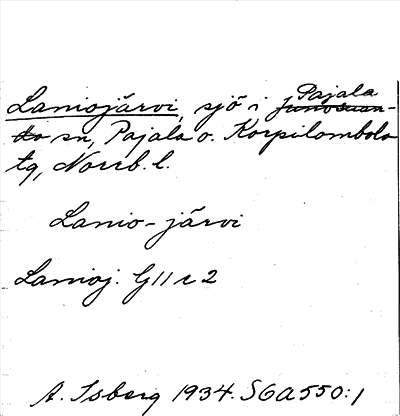 Laniojärvi, sjö i Pajala ~~Junosuan-~~
~~do~~ sn, Pajala o. Korpilombolo
tg, Norrb. l.
Lanio-järvi
Lanioj. G11 r 2
A. Isberg 1934. SGA 550:1